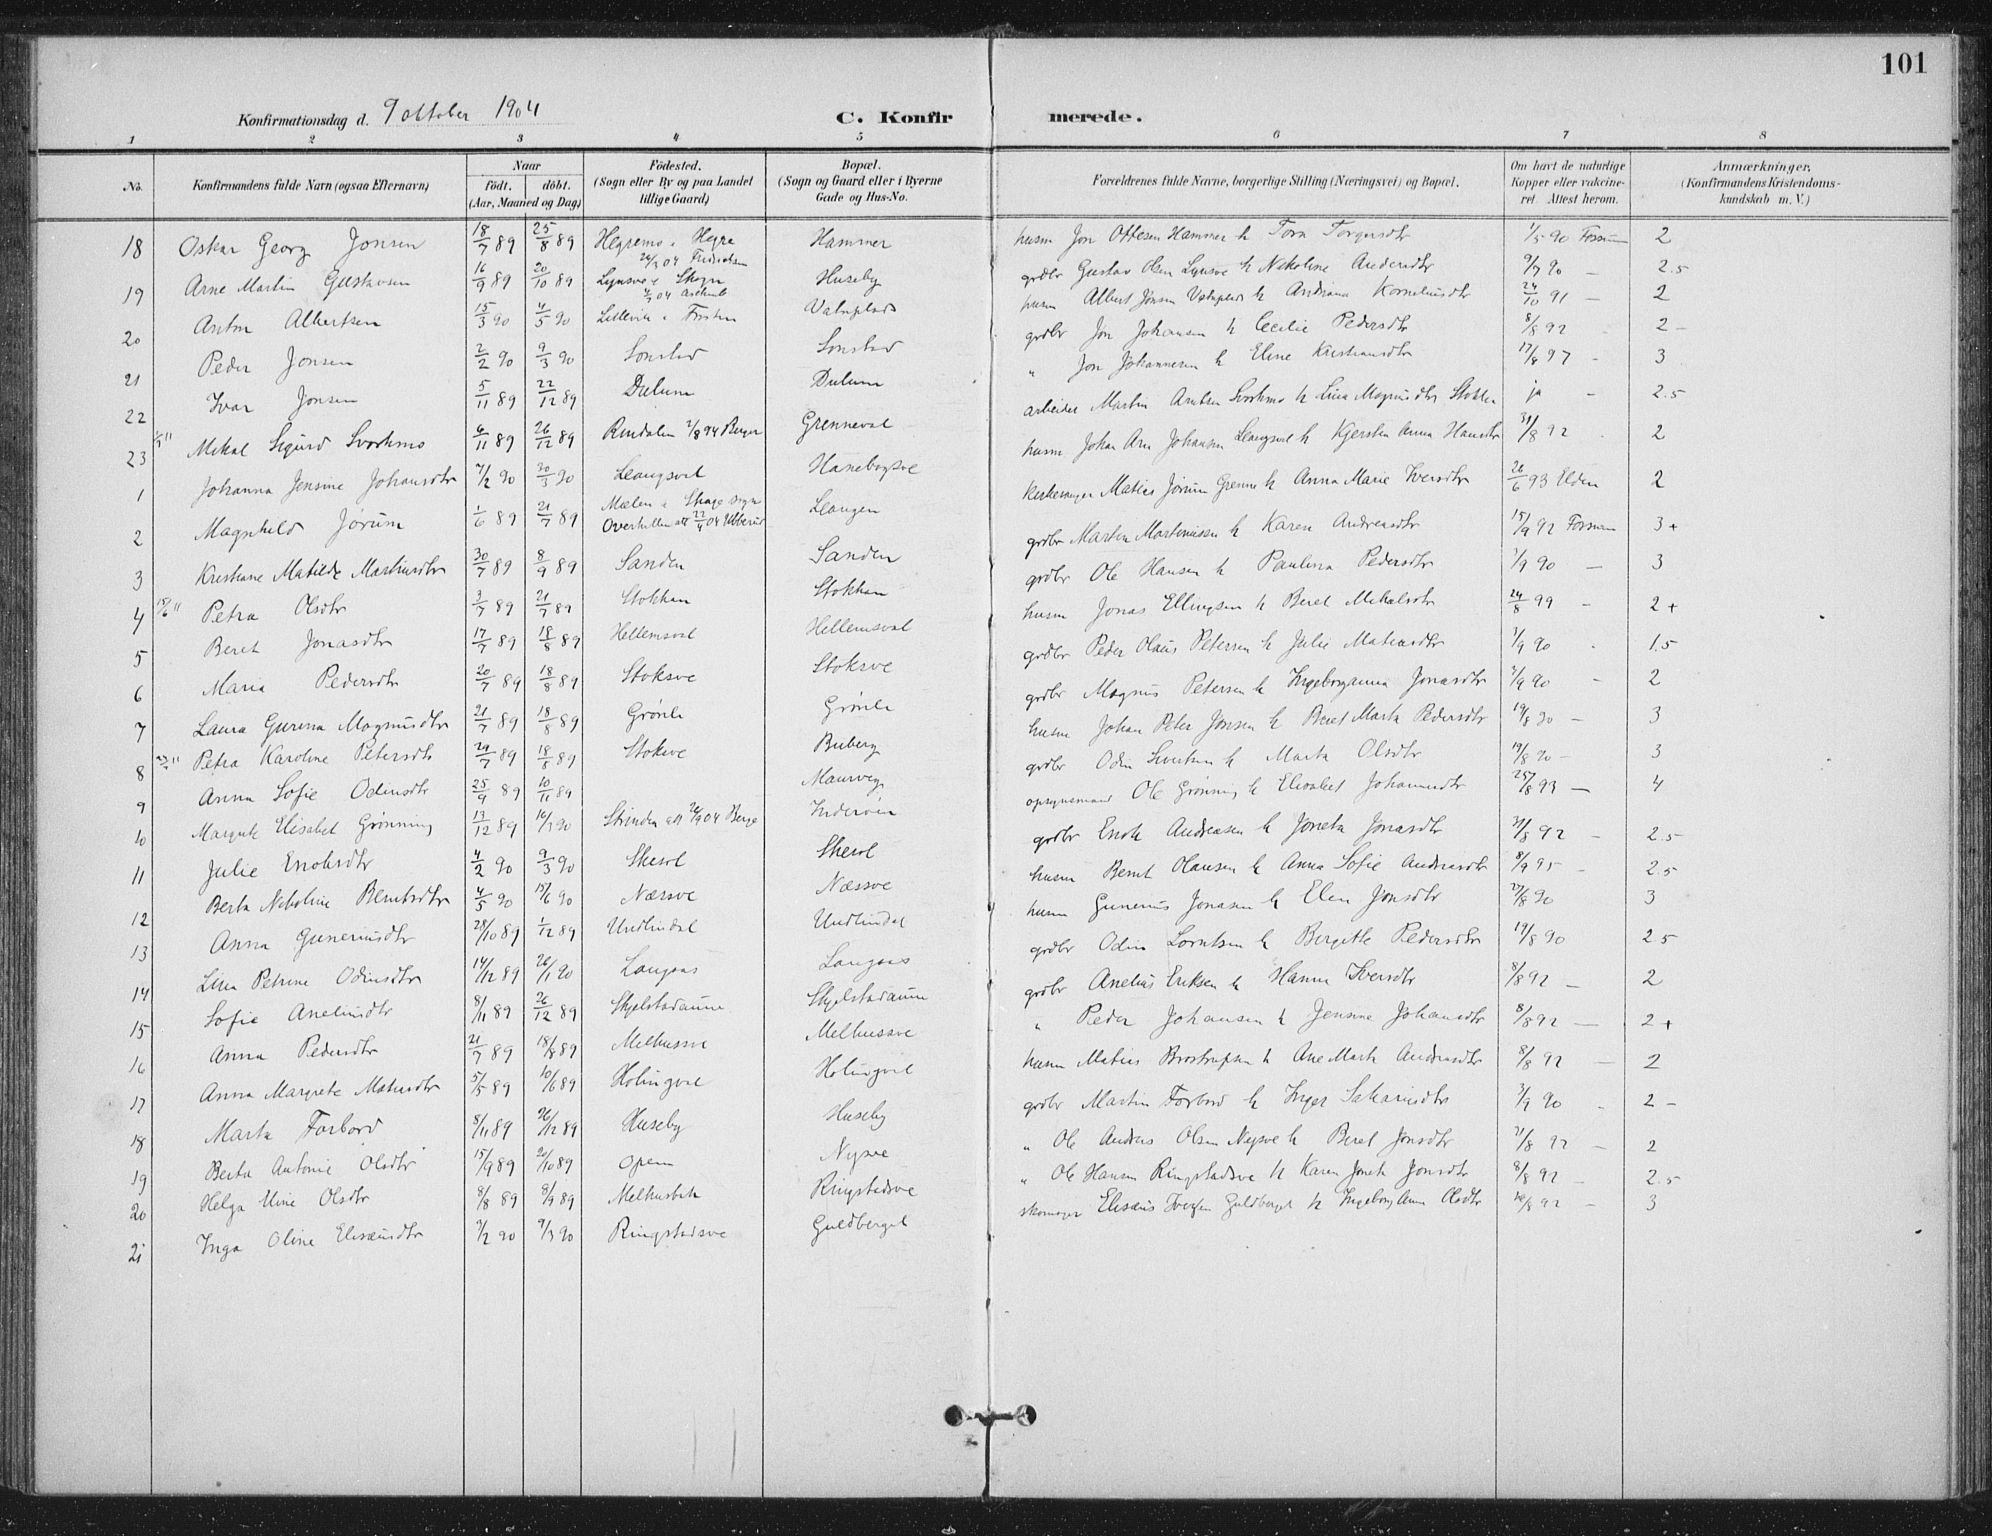 101
Konfirmationsdag d. 9 oktober 1904 C. Konfirmerede.
1 2 3 4 5 6 7 8
No. Konfirmandens fulde Navn (ogsaa Efternavn) Naar født. døbt. (Aar, Maaned og Dag) Fødested. (Sogn eller By og paa Landet tillige Gaard) Bopæl. (Sogn og Gaard eller i Byerne Gade og Hus-No. Forældrenes fulde Navne, borgerlige Stilling (Næringsvei) og Bopæl. Om havt de naturlige Kopper eller vakcineret. Attest herom. Anmærkninger. (Konfirmandens Kristendomskundskab m. V.)
18 Oskar Georg Jonsen 18/7 89 25/8 89 Hegremo i Hegre Hammer husm Jon Ottesen Hammer h Tora Torgersdtr 1/5 90 Fossum 2
19 Arne Martin Gustavsen 16/9 89 20/10 89 Lynsve i Skogn Huseby grdbr Gustav Olsen Lynsve h Nekoline Andersdtr 9/7 90 — 2.5
20 Anton Albertsen 15/3 90 4/5 90 Lillevik i Frosten husm Albert Jonsen h Andriana Korneliusdtr 24/10 91 — 2
21 Peder Jonsen 2/2 90 9/3 90 Sonstad Sonstad grdbr Jon Johansen h Cecilie Pedersdtr 8/8 92 2 -
22 Ivar Jonsen 5/11 89 22/12 89 Dulum Dulum " Jon Johannesen h Eline Kristiansdtr 17/8 97 - 3
23 Mikal Sigurd Svorkmo 4/11 89 26/12 89 Rindalen 2/8 94 Berger Grenneval arbeider Martin Arntsen Svorkmo h Lina Magnusdtr Stokken ja - 2.5
1 Johanna Jensine Johansdtr 7/2 90 30/3 90 Leangsval Hanebogsve husm Johan Arn Johansen Leangsval h Kjersten Anna Hansdtr 31/8 92 2
2 Magnhild Jørum 1/6 89 21/7 89 Mælen i Skage sogn Overhallen att 22/4 04 Leangen Kirkesanger Matias Jørum Grenne h Anna Marie Iversdtr 26/6 93 Elden 2
3 Kristiane Matilde Martinsdtr 30/7 89 8/9 89 Sanden Sanden grdbr Martin Martinussen h Karen Andreasdtr 15/9 92 Fossum 3+
4 Petra Olsdtr 3/7 89 21/7 89 Stokkan Stokkan grdbr Ole Hansen h Paulina Pedersdtr 1/9 90 — 3
5 Beret Jonasdtr 17/7 89 18/8 89 Hellemsval Hellemsval husm Jonas Ellingsen h Beret Mikalsdtr 24/8 99 - 2+
6 Maria Pedersdtr 20/7 89 18/8 89 Stoksve Stoksve grdbr Peder Olaus Petersen h Julie Matiasdtr 1/9 90 1.5
7 Laura Gurina Magnusdtr 21/7 89 18/8 89 Grönli Grönli grdbr Magnus Petersen h Ingeborganna Jonasdtr 1/9 90 - 2
8 Petra Karoline Petersdtr 29/7 89 18/8 89 Stoksve Buberg husm Johan Peter Jonsen h Beret Marta Pedersdtr 19/8 90 - 3
9 Anna Sofie Odinsdtr 25/9 89 10/11 89 Maurveg grdbr Odin Sivertsen h Marta Olsdtr 19/8 90 - 3
10 Margrete Elisabet Grønning 13/12 89 Strinden att 04 Berge Inderøien opsynsmand Ole Grønning h Elisabet Johannesdtr 25/8 93 — 4
11 Julie Enoksdtr 4/2 90 9/3 90 Skesol Skesol grdbr Enok Andreasen h Joneta Jonasdtr 31/8 92 — 2.5
12 Berta Nekoline Berntsdtr 4/5 90 15/6 90 Næssve Næssve husm Bernt Olausen h Anna Sofie Andreasdtr 8/9 95 - 2.5
13 Anna Guneriusdtr 28/10 89 1/12 89 Undlindal Undlindal husm Gunerius Jonasen h Elen Jonsdtr 27/8 90 3
14 Lina Petrine Odinsdtr 14/12 89 26/1 90 Langaas Langaas grdbr Odin Lorntsen h Bergitte Pedersdtr 19/8 90 2 5
15 Sofie Aneliusdtr 8/11 89 26/12 89 Skjelstadaune Skjelstadaune grdbr Anelius Eriksen h Hanna Iversdtr 8/8 92 — 2
16 Anna Pedersdtr 21/7 89 18/8 89 Melhussve Melhussve " Peder Johansen h Jensine Johansdtr 8/8 92 — 2+
17 Anna Margrete Matiasdtr 5/5 89 10/6 89 Holingval Holingval husm Matias h Ane Marta Andreasdtr 8/8 92 — 2
18 Marta Forbord 8/11 89 26/12 89 Huseby Huseby grdbr Martin Forbord h Inger Sakariasdtr 3/9 90 - 2 -
19 Berta Antonie Olsdtr 15/9 89 20/10 89 Nysve " Ole Anders Olsen Nysve h Beret Jonsdtr 31/8 92 — 2
20 Helga Oline Olsdtr 8/8 89 8/9 89 Melhusbak Ringstadsve " Ole Hansen Ringstadsve h Karen Joneta Jonsdtr 8/8 92 — 2.5
21 Inga Oline Eliseusdtr 9/3 90 Ringstadsve Guldberget skomager Eliseus Iversen Guldberget h Ingeborg Anna Olsdtr 3